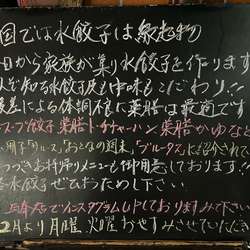 国では水餃子は縁起物
日から家族が集り水餃子を作ります
知る水餃子皮も中味もこだわり!!
による体調不良に薬膳は最適です
スープ餃子 薬膳トマトチャーハン 薬膳かゆな
用子「クルーズ」「おとなの週末」「ブルータス」に紹介されて
お持帰りメニューも御用意しております
水餃子ぜひおためし下さい
当店でインスタグラムUPしております みて下さい
2月より月曜、火曜 おやすみさせていただき